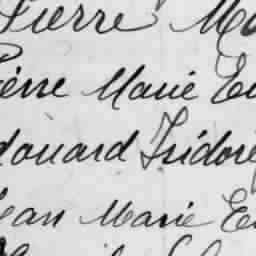 Pierre Ma
Pierre Marie Eu
douard Isidore
Jean Marie Eu